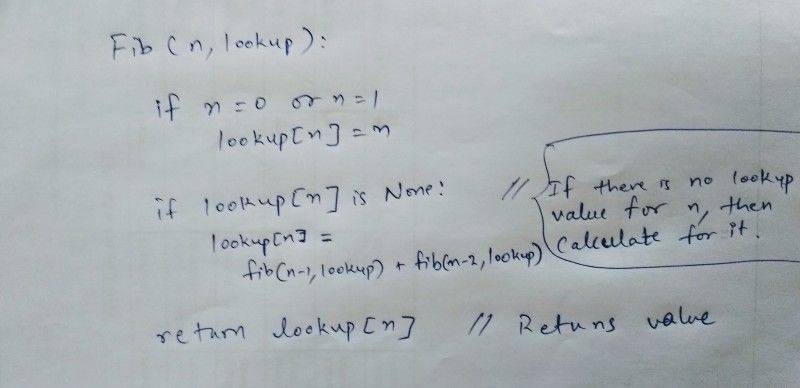 Fib (n, lookup):
if n=0 or n=1
lookup[n] = n
if lookup[n] is None: // If there is no lookup
value for n, then
lookup[n] =
calculate for it.
fib(n-1, lookup) + fib(n-2, lookup)
return lookup[n] // Retuns value